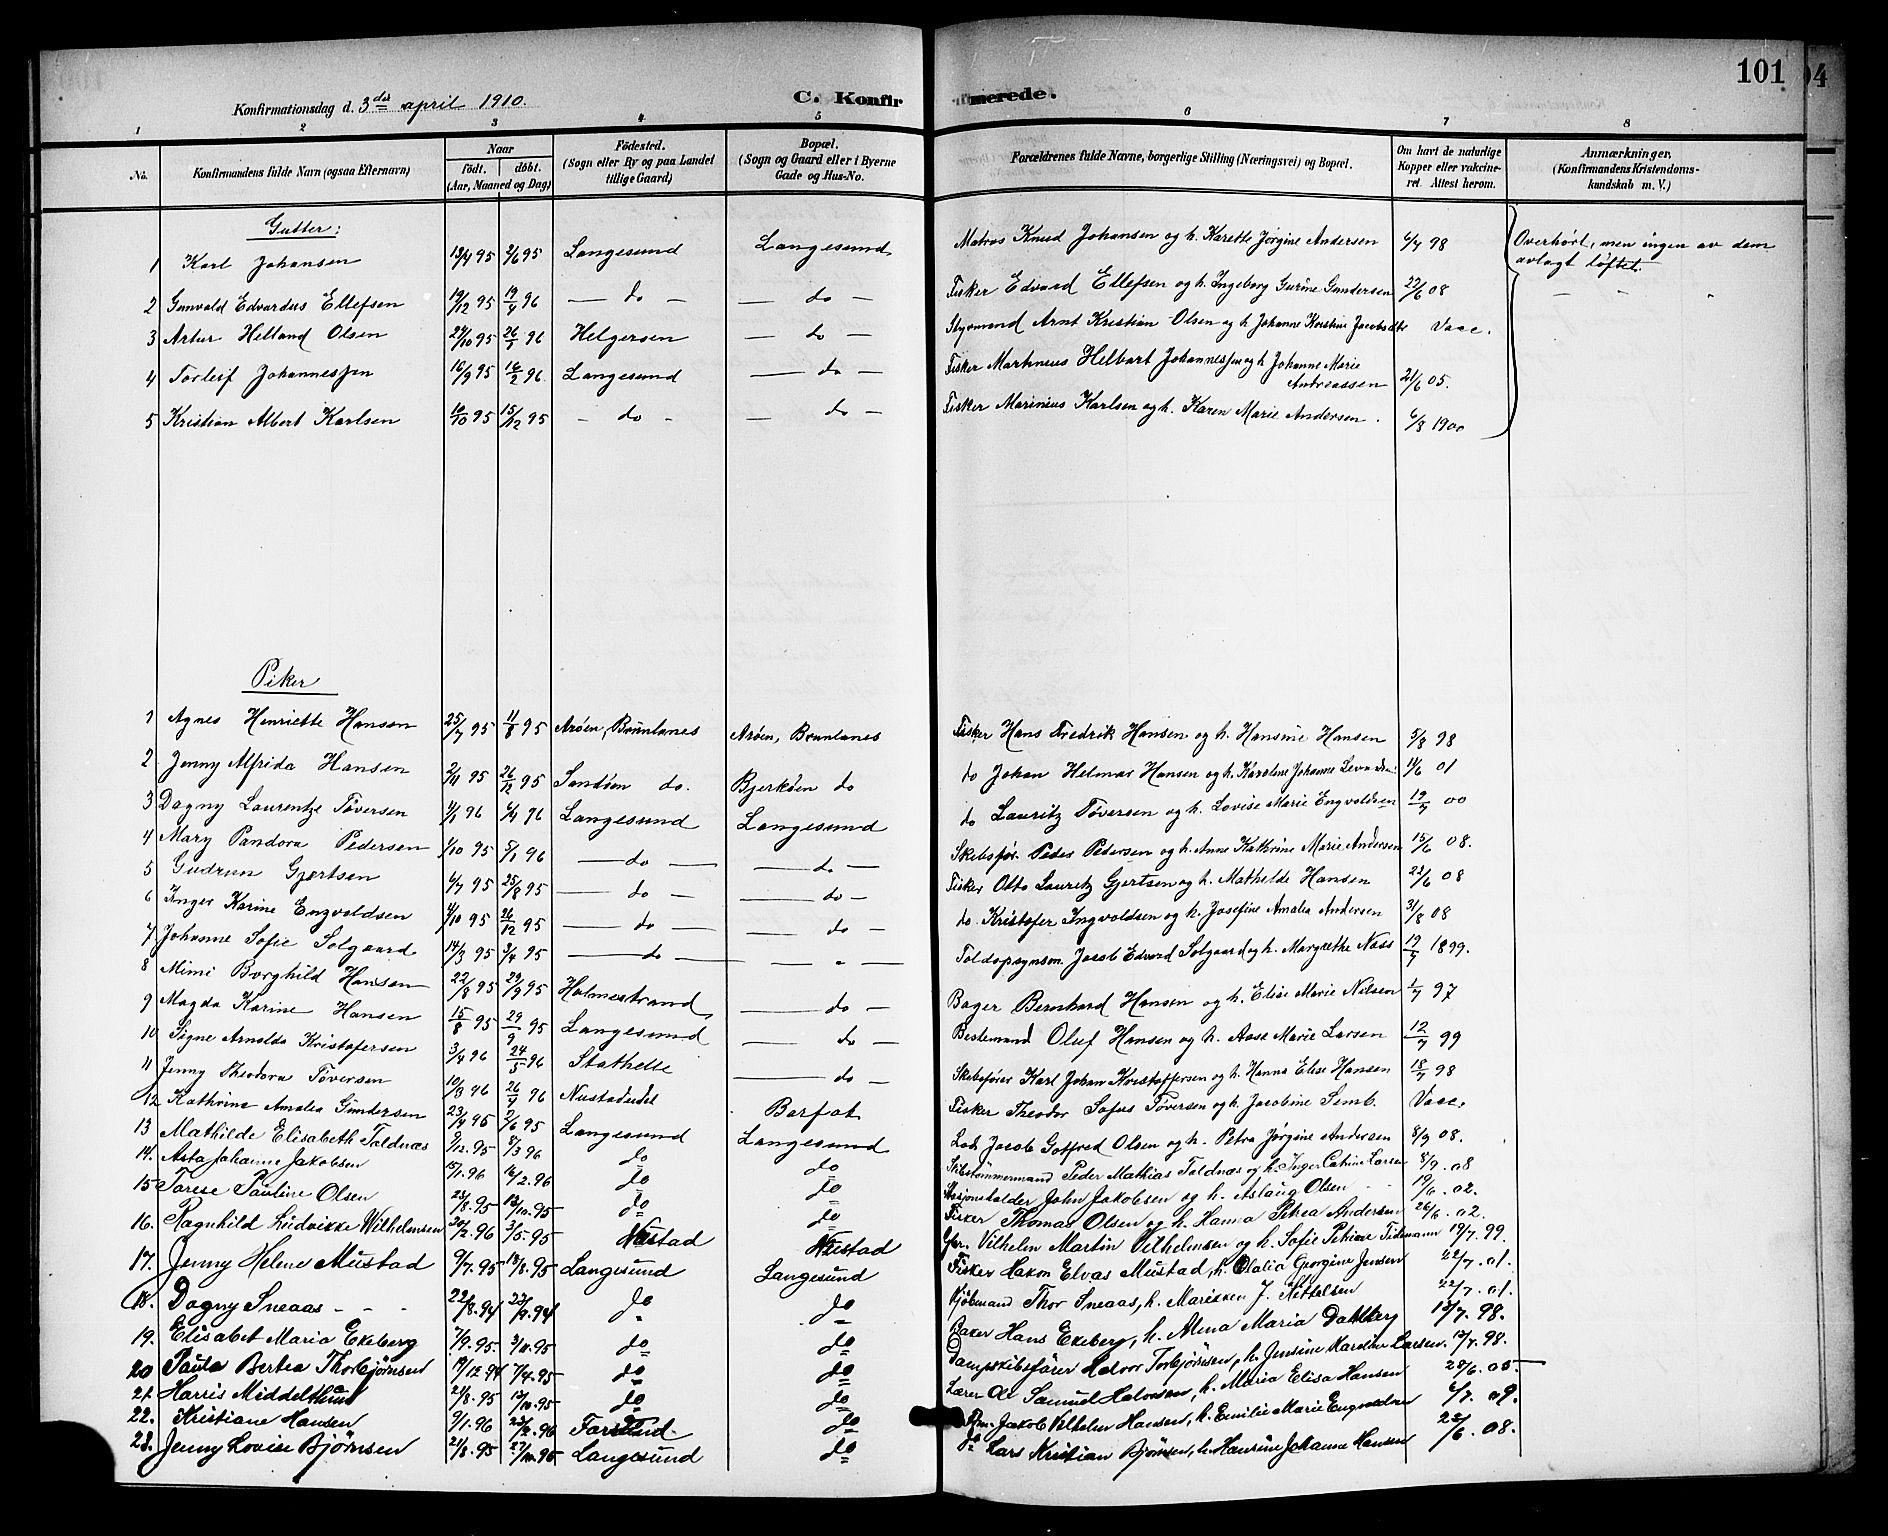 101
Konfirmationsdag d. 3die april 1910.
C. Konfirmerede.
1 2 3 4 5 6 7 8
No. Konfirmandens fulde Navn (ogsaa Efternavn) Naar født. døbt. (Aar, Maaned og Dag) Fødested. (Sogn eller By og paa Landet tillige Gaard) Bopæl. (Sogn og Gaard eller i Byerne Gade og Hus-No. Forældrenes fulde Navne, borgerlige Stilling (Næringsvei) og Bopæl. Om havt de naturlige Kopper eller vakcineret. Attest herom. Anmærkninger, (Konfirmandens Kristendomskundskab m. V.)
Gutter:
1 Karl Johansen 13/4 95 2/6 95 Langesund Langesund Matros Knud Johansen og h. Karette Jørgine Andersen 6/7 98 Overhørt, men ingen av dem avlagt løftet.
2 Gunvald Edvardus Ellefsen 19/12 95 19/4 96 — do — — do — Fisker Edvard Ellefsen og h. Ingeborg Gurine Gundersen 22/6 08 " " "
3 Artur Helland Olsen 27/10 95 26/1 96 Helgeroen — do — Styrmand Arnt Kristian Olsen og h. Johanne Kirstine Vacc.
4 Torleif Johannessen 16/9 95 16/2 96 Langesund — do — Fisker Martinius Helbart Johannessen og h. Johanne Marie Andreassen 21/6 05.
5 Kristian Albert Karlsen 10/10 95 15/12 95 — do — — do — Fisker Marinius Karlsen og h. Karen Marie Andersen. 6/8 1900
Piker
1 Agnes Henriette Hansen 25/7 95 11/8 95 Arøen, Brunlanes Arøen, Brunlanes Fisker Hans Fredrik Hansen og h. Hansine Hansen 5/8 98
2 Jenny Alfrida Hansen 2/11 95 26/12 95 Sandøen do. Bjerkøen do do Johan Helmar Hansen og h. Karoline Johanne 4/6 01
3 Dagny Laurentze Tøversen 4/1 96 6/4 96 Langesund Langesund do Lauritz Tøversen og h. Lovise Marie Engvoldsen 19/7 00
4 Mary Pandora Pedersen 1/10 95 5/1 96 — do — — do — Skibsfør. Peder Pedersen og h. Anne Kathrine Marie Andersen 15/6 08.
5 Gudrun Gjertsen 4/7 95 25/8 95 — do — — do — Fisker Otto Lauritz Gjertsen og h. Mathilde Hansen 22/6 08
6 Inger Karine Engvoldsen 4/10 95 26/12 95 — do — — do — do. Kristofer Ingvoldsen og h. Josefine Amalia Andersen 31/8 08
7 Johanne Sofie Solgaard 14/3 95 3/4 95 — do — — " — Toldopsynsm. Jacob Edvard Solgaard og h. Margrethe Næss 19/7 1899.
8 Mimi Borghild Hansen 22/8 95 29/9 95 Holmestrand — do — Bager Bernhard Hansen og h. Elise Marie Nilsen 1/7 97
9 Magda Karine Hansen 15/8 95 29/9 95 Langesund — do — Bestemand Oluf Hansen og h. Aase Marie Larsen 12/7 99
10 Signe Arnolda Kristofersen 3/4 96 24/5 96 Stathelle — do — Skibsfører Karl Johan Kristoffersen og h. Hanna Elise Hansen 18/7 98
11 Jenny Theodora Tøversen 10/3 96 26/7 96 Nustadudet Barfot Fisker Theodor Sofus Tøversen og h. Jacobine Semb. Vacc.
12 Kathrine Amalia Gundersen 23/4 95 2/6 95 Langesund Langesund Lods Jacob Gotfred Olsen og h. Petra Jørgine Andersen 8/9 08.
13 Mathilde Elisabeth Taldnæs 9/12. 95 8/3 96 do do Skibstømmermand Peder Mathias Taldnæs og h. Inger Catrine Larsen 8/9. 08
14. Asta Johanne Jakobsen 15/1. 96 16/2. 96 do do John Jakobsen og h. Aslaug Olsen 19/6. 02.
15 Tarese Pauline Olsen 25/8. 95 13/10. 95 do do Fisker Thomas Olsen og h. Hanna Petrea Andersen 26/6. 02.
16. Ragnhild Ludvikke Wilhelmsen 20/2. 96 3/5. 95 Nustad Nustad Vilhelm Martin Vilhelmsen og h. Sofie Petrine Tidemann 19/7. 99.
17. Jenny Helene Mustad 9/7. 95 18/8. 95 Langesund Langesund Fisker Hakon Elvas Mustad, h. Olalia Georgine Jensen 22/7. 01.
18. Dagny Sneaas 22/8. 94 23/9. 94 do do Kjøbmand Thor Sneaas, h. Marikken J. Kittelsen 22/7. 01.
19. Elisabet Maria Ekeberg 7/9. 95. 3/11. 95 do do Baker Hans Ekeberg, h. Mena Maria Dahlberg 13/7. 98.
20 Paula Bertea Thorbjørnsen 19/12. 94 7/4. 95 do do Dampskibsfører Halvor Torbjørnsen, h. Jensine Karoline Larsen. 12/7. 98.
21. Harris Middelthun 21/8. 95 13/10. 95 do do Lærer Ole Samuel Halvorsen, h. Maria Elisa Hansen 28/6. 05.
22. Kristiane Hansen 9/1. 96 23/2. 96 do Jakob Vilhelm Hansen, h. Emilie Marie Engvoldsen 6/7. 09.
23. Jenny Lovise Bjørnsen 21/8. 95 27/10. 95 Langesund do do Lars Kristian Bjørnsen, h. Johanne Hansen 22/6. 08.